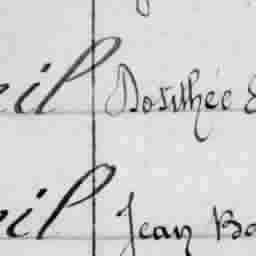 eil Dorithée
eil Jean Ba